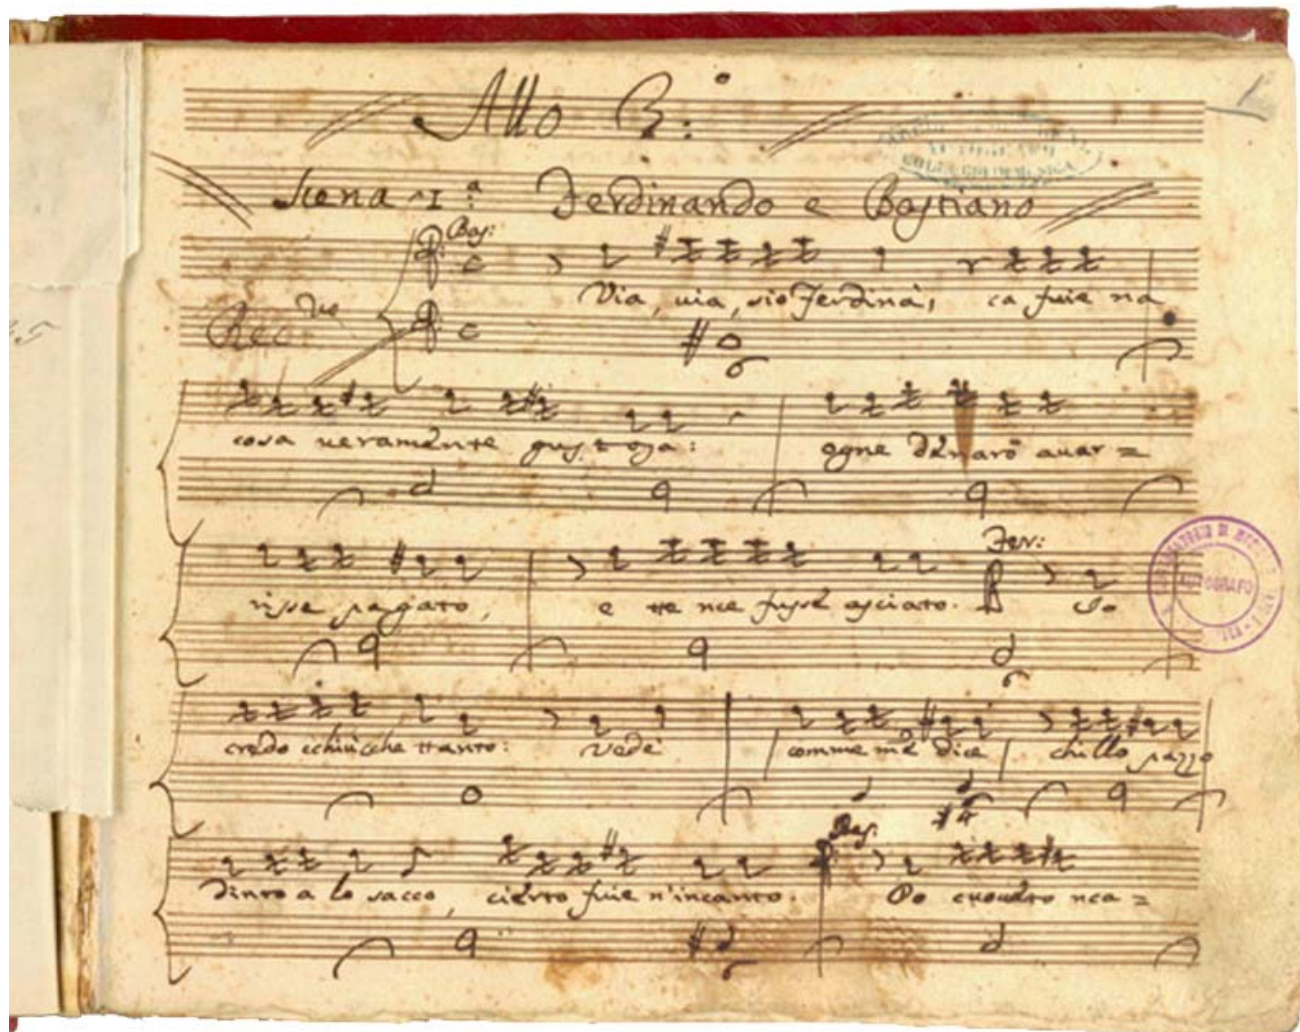 Atto 3:º
Scena I:ª Ferdinando e Bastiano
Bas:
Via, via, sio Ferdinà, ca fuie na
Rec.ve
cosa veramente gustosa: ogne denaro avar=
Fer:
risse pagato, e te nce fusse asciato. So
credo cchiù cche ttanto: vedè comme me dice chillo pazzo
Bas:
dinto a lo sacco, cierto fuie n'incanto. Po nca=
AUTOGRAFO